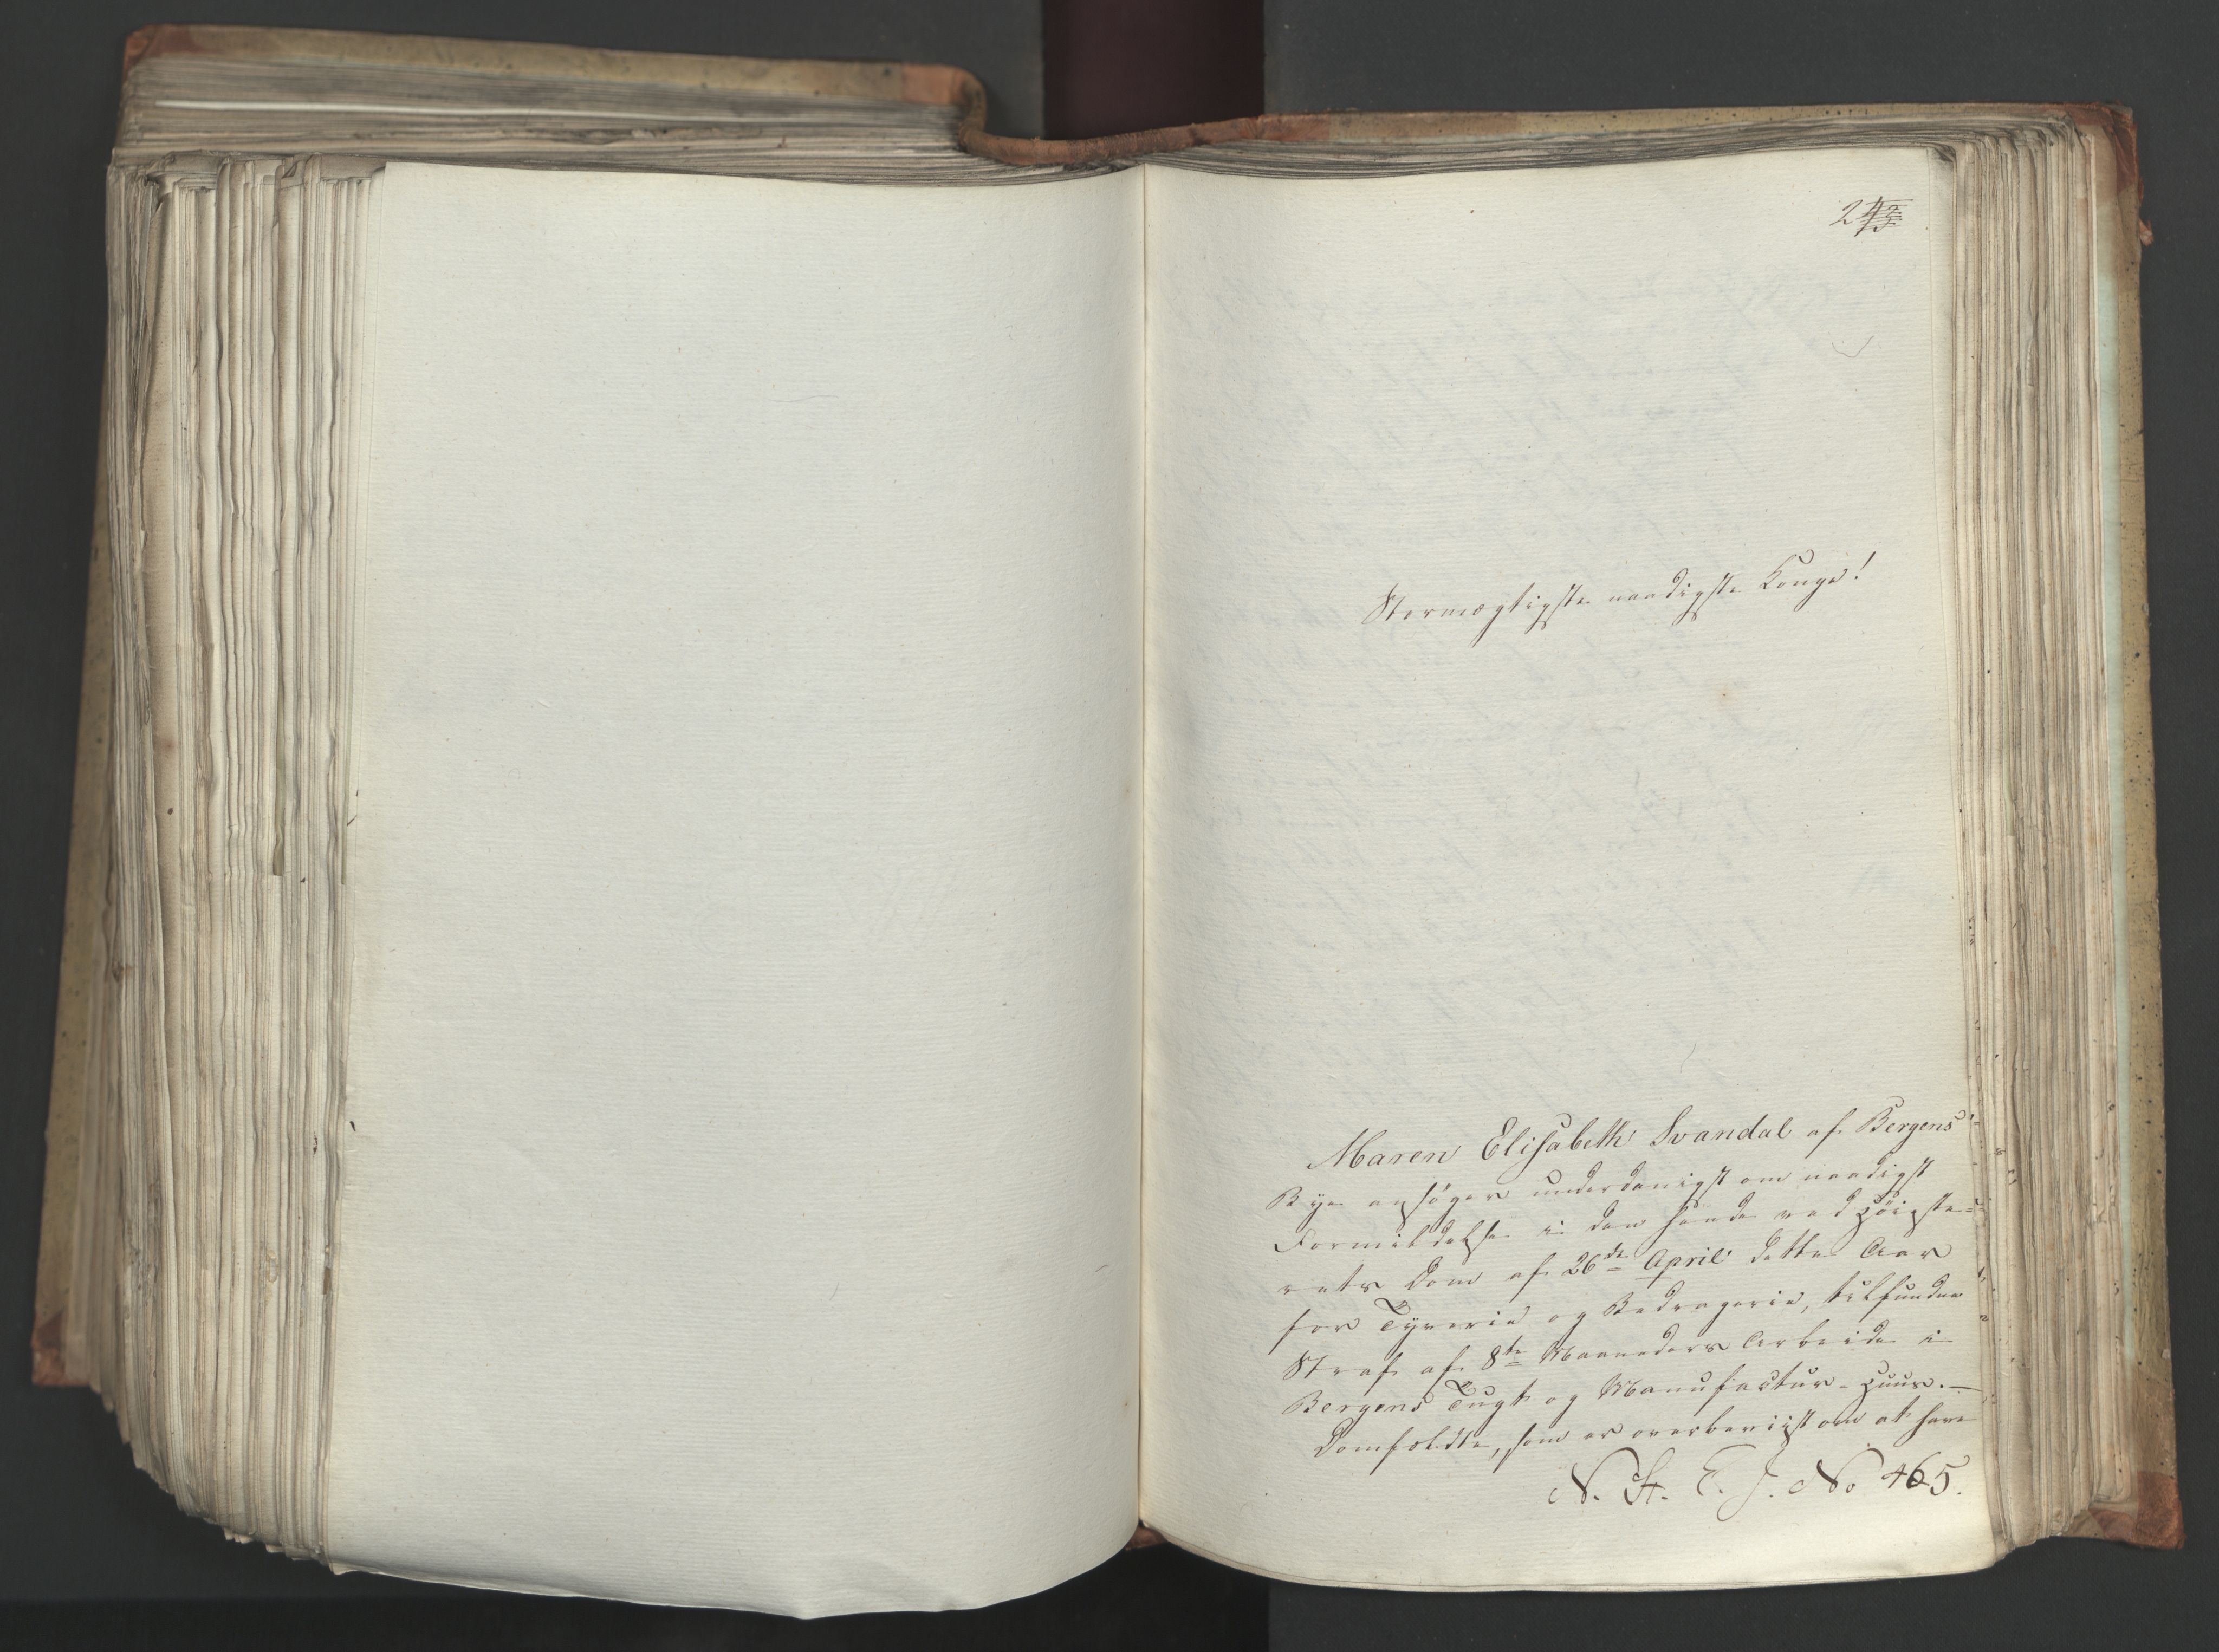 Stormægtigste naadigste Konge!
Maren Elisabeth Svandal af Bergens
Bye ansøger underdanigst om naadigst
Formildelse i den hende ved Høieste-
rets Dom af 26de April dette Aar
for Tyverie og Bedragerie, tilfundne
Straf af 8te Maaneders Arbeide i
Bergens Tugt og Manufactur-Huus.—
Domfældte, som er overbeviist om at have
N. St. E. J. No 465.